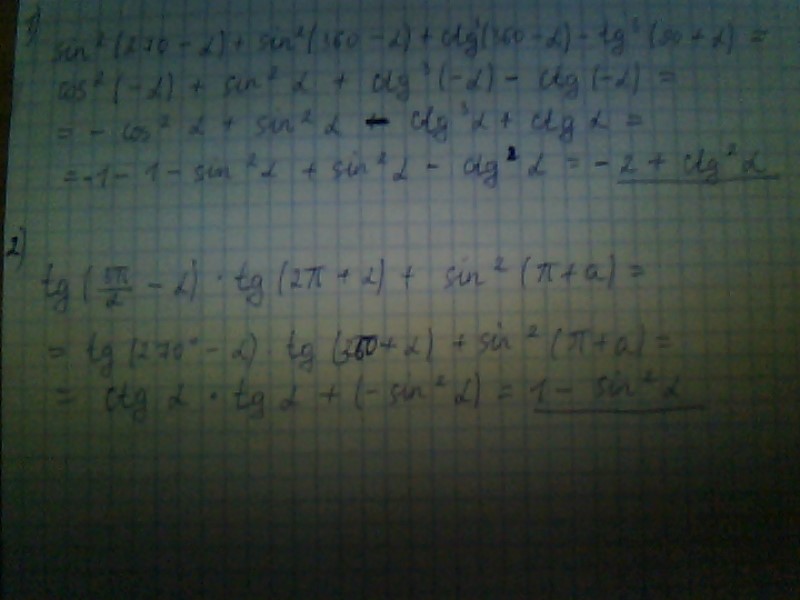 1)
sin² (270 - α) + sin² (360 - α) + ctg³ (360 - α) - tg³ (90 + α) =
cos² (-α) + sin² α + ctg³ (-α) - ctg (-α) =
= - cos² α + sin² α - ctg³ α + ctg α =
= -1 - 1 - sin² α + sin² α - ctg² α = - 2 + ctg² α
2)
tg (3π/2 - α) · tg (2π + α) + sin² (π + a) =
= tg (270° - α) · tg (360 + α) + sin² (π + a) =
= ctg α · tg α + (- sin² α) = 1 - sin² α